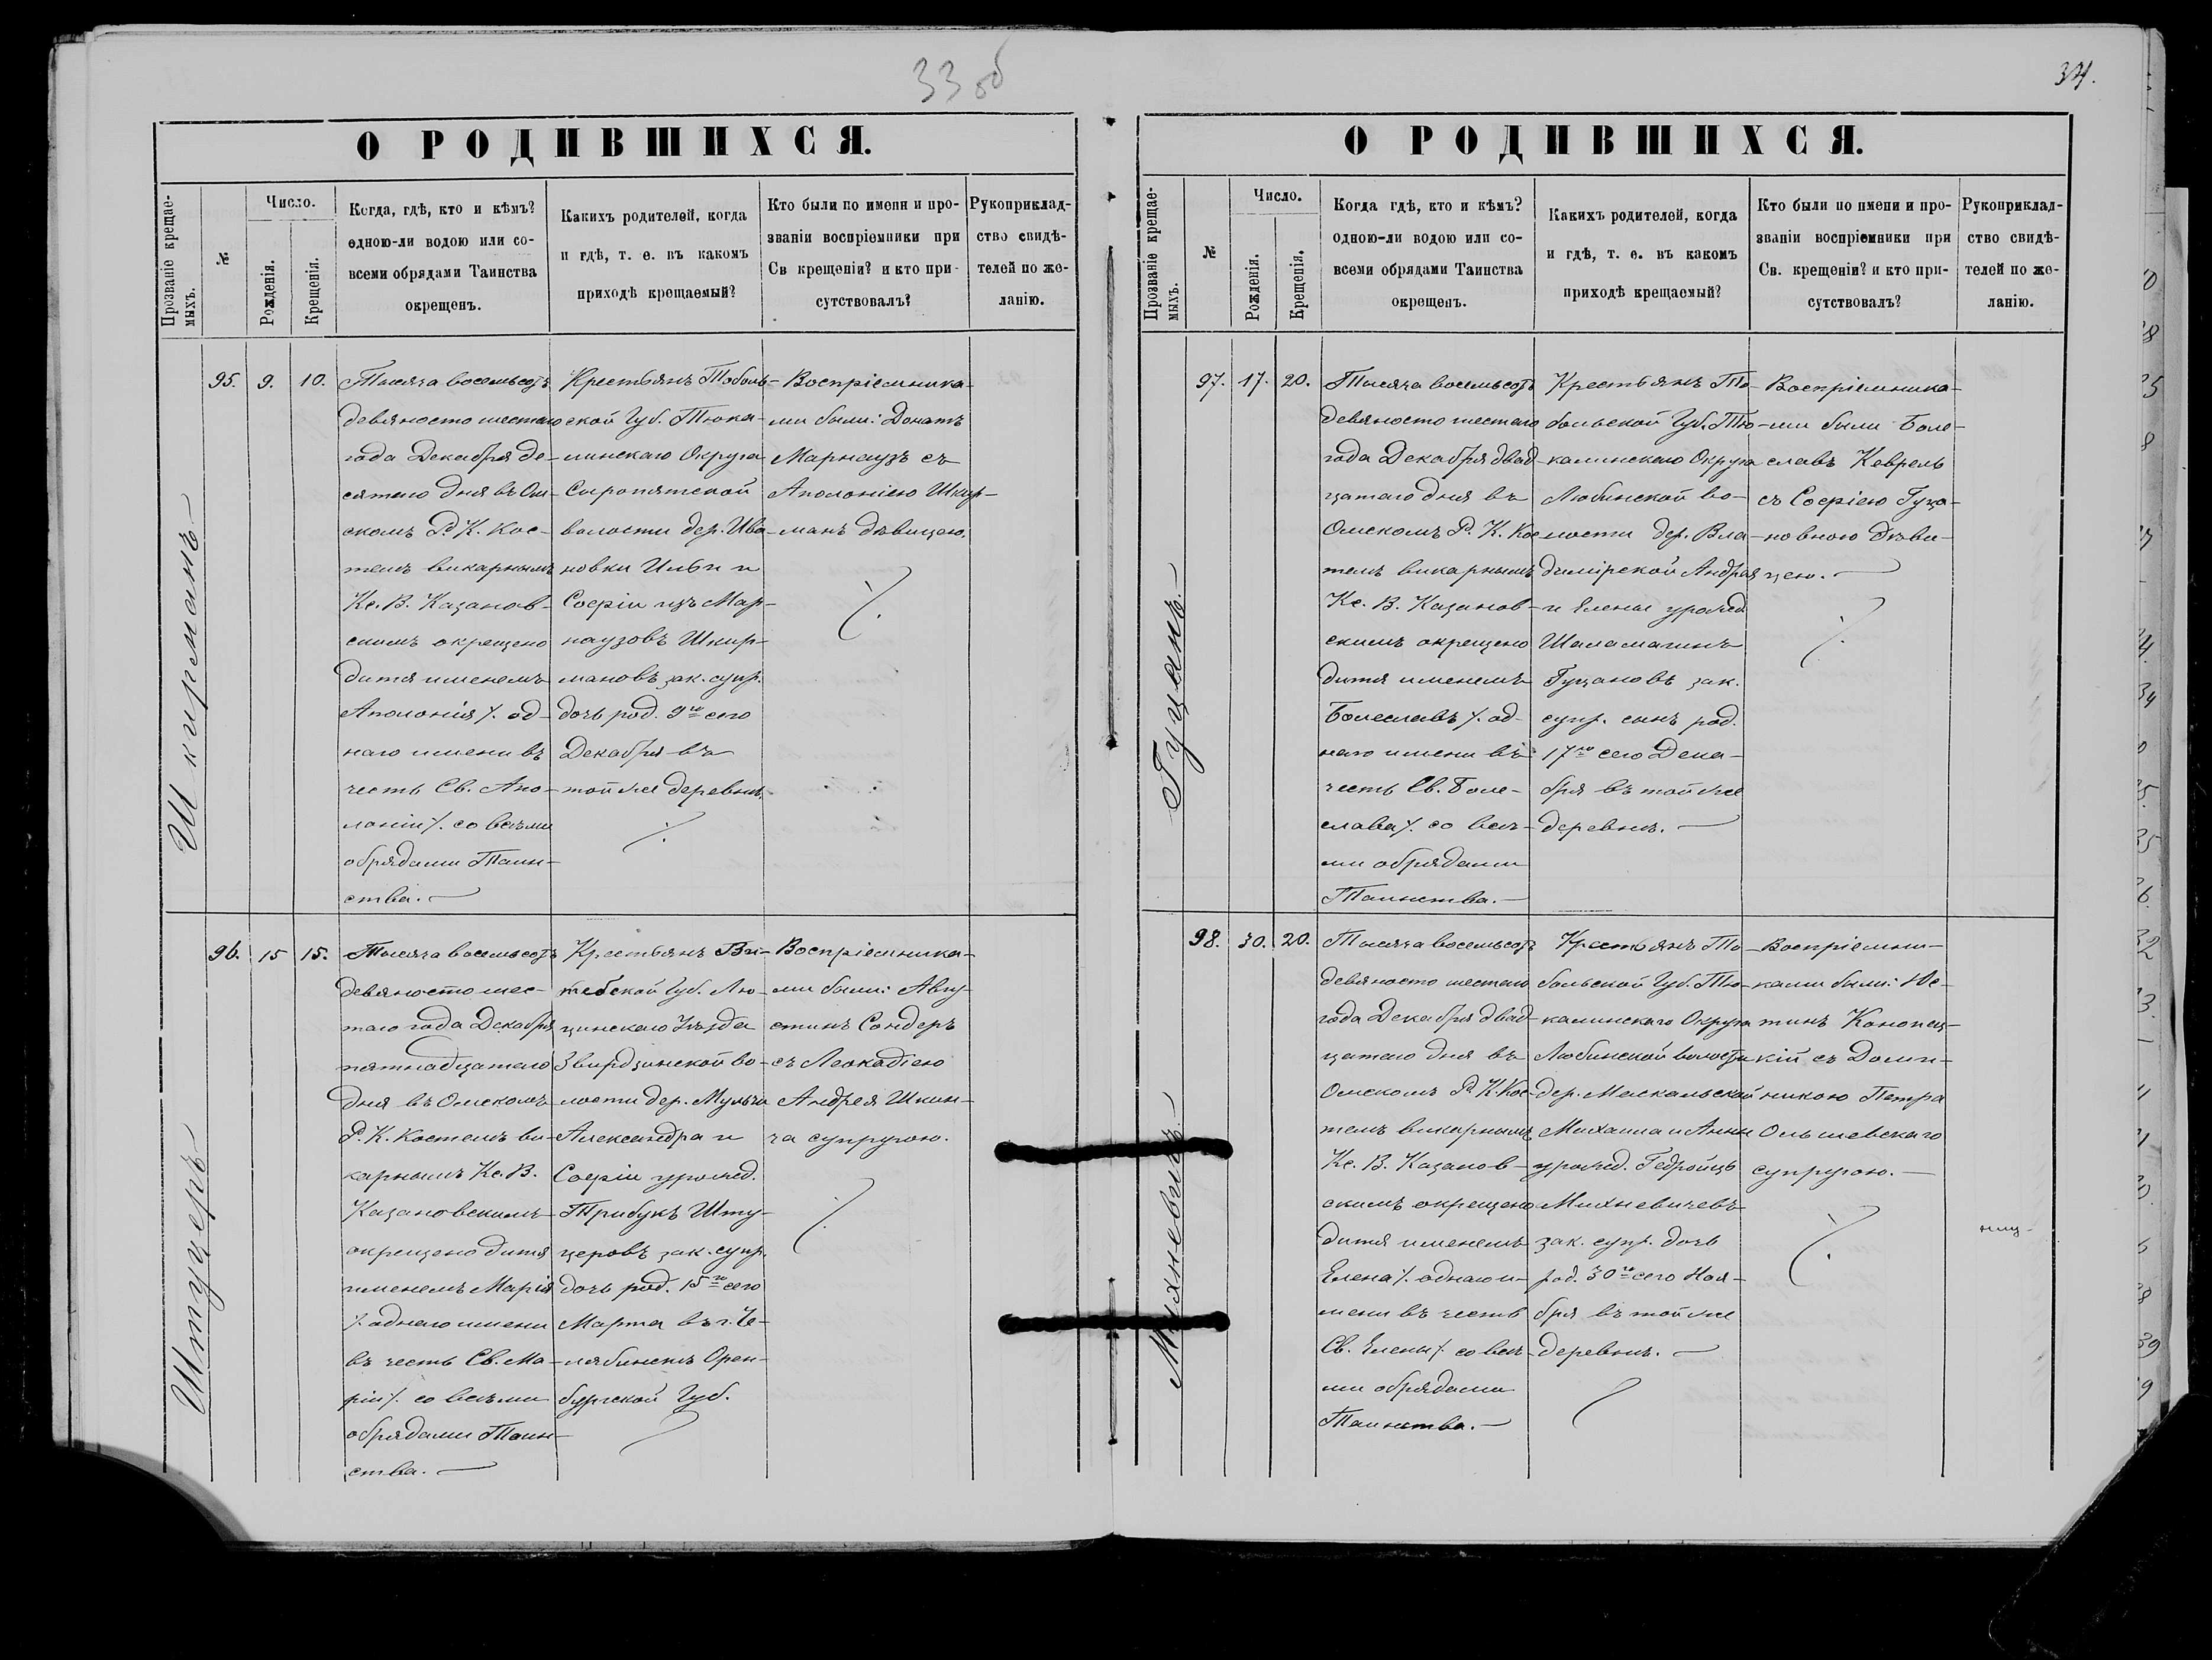 33 об
О РОДИВШИХСЯ.
Прозваніе крещае-
мыхъ.
№
Число.
Рожденія.
Крещенія.
Когда, гдѣ, кто и кѣмъ?
одною-ли водою или со-
всеми обрядами Таинства
окрещенъ.
Какихъ родителей, когда
и гдѣ, т. е. въ какомъ
приходѣ крещаемый?
Кто были по имени и про-
званіи воспріемники при
Св крещеніи? и кто при-
сутствовалъ?
Рукоприклад-
ство свидѣ-
телей по же-
ланію.
Шкирманъ.
95.
9.
10.
Тысяча восемьсотъ
девяносто шестаго
года Декабря де-
сятаго дня въ Ом-
скомъ Р. К. Кос-
телѣ викарнымъ
Кс. В. Казанов-
скимъ окрещено
дитя именемъ
Аполонія ⁒ од-
наго имени въ
честь Св. Апо-
лоніи ⁒ со всѣми
обрядами Таин-
ства.
Крестьянъ Тоболь-
ской Губ. Тюка-
линскаго Округа
Сыропятской
волости дер. Ива-
новки Ильи и
Софіи изъ Мар-
наузовъ Шкир-
мановъ зак. супр.
дочь род. 9го сего
Декабря въ
той же деревнѣ.
Воспріемника-
ми были: Донатъ
Марнаузъ съ
Аполоніею Шкир-
манъ дѣвицею.
96.
15
15.
Штуцеръ
Тысяча восемьсотъ
девяносто шес-
таго года Декабря
пятнадцатаго
дня въ Омскомъ
Р. К. Костелѣ ви-
карнымъ Кс. В.
Казановскимъ
окрещено дитя
именемъ Марія
⁒ однаго имени
въ честь Св. Ма-
ріи ⁒ со всѣми
обрядами Таин-
ства.
Крестьянъ Ви-
тебской Губ. Лю-
цинскаго Уѣзда
Звирдзинской во-
лости дер.
Александра и
Софіи урожд.
Трибукъ Шту-
церовъ зак. супр.
дочь род. 15го сего
Марта въ г. Че-
лябинскѣ Орен-
бургской Губ.
Воспріемника-
ми были: Авгу-
стинъ Сондеръ
съ Леокадіею
Андрея Шкин-
ча супругою.
34.
О РОДИВШИХСЯ.
Прозваніе крещае-
мыхъ.
№
Число.
Рожденія.
Крещенія.
Когда гдѣ, кто и кѣмъ?
одною-ли водою или со-
всеми обрядами Таинства
окрещенъ.
Какихъ родителей, когда
и гдѣ, т. е. въ какомъ
приходѣ крещаемый?
Кто были по имени и про-
званіи воспріемники при
Св. крещеніи? и кто при-
сутствовалъ?
Рукоприклад-
ство свидѣ-
телей по же-
ланію.
Гуцанъ.
97.
17.
20.
Тысяча восемьсотъ
девяносто шестаго
года Декабря двад-
цатаго дня въ
Омскомъ Р. К. Кос-
телѣ викарнымъ
Кс. В. Казанов-
скимъ окрещено
дитя именемъ
Болеславъ ⁒ од-
наго имени въ
честь Св. Боле-
слава ⁒ со всѣ-
ми обрядами
Таинства.
Крестьянъ То-
больской Губ. Тю-
калинскаго Округа
Любинской во-
лости дер. Вла-
димірской Андрея
и Елены урожд
Шаламагинъ
Гуцановъ зак.
супр. сынъ род.
17го сего Дека-
бря въ той же
деревнѣ.
Воспріемника-
ми были Боле-
славъ Кеврель
съ Софіею Гуца-
новною дѣви-
цею.
Михневичъ.
98.
30.
20.
Тысяча восемьсотъ
девяносто шестаго
года Декабря двад-
цатаго дня въ
Омскомъ Р. К. Кос-
телѣ викарнымъ
Кс. В. Казанов-
скимъ окрещено
дитя именемъ
Елена ⁒ однаго и-
мени въ честь
Св. Елены ⁒ со всѣ-
ми обрядами
Таинства.
Крестьянъ То-
больской Губ. Тю-
калинскаго Округа
Любинской волости
дер. Маскальской
Михаила и Анны
урожд. Гедройць
Михневичевъ
зак. супр. дочь
род. 30го сего Ноя-
бря въ той же
деревнѣ.
Воспріемни-
ками были: Юс-
тинъ Конопец-
кій съ Доми-
никою Петра
Ольшевскаго
супругою.